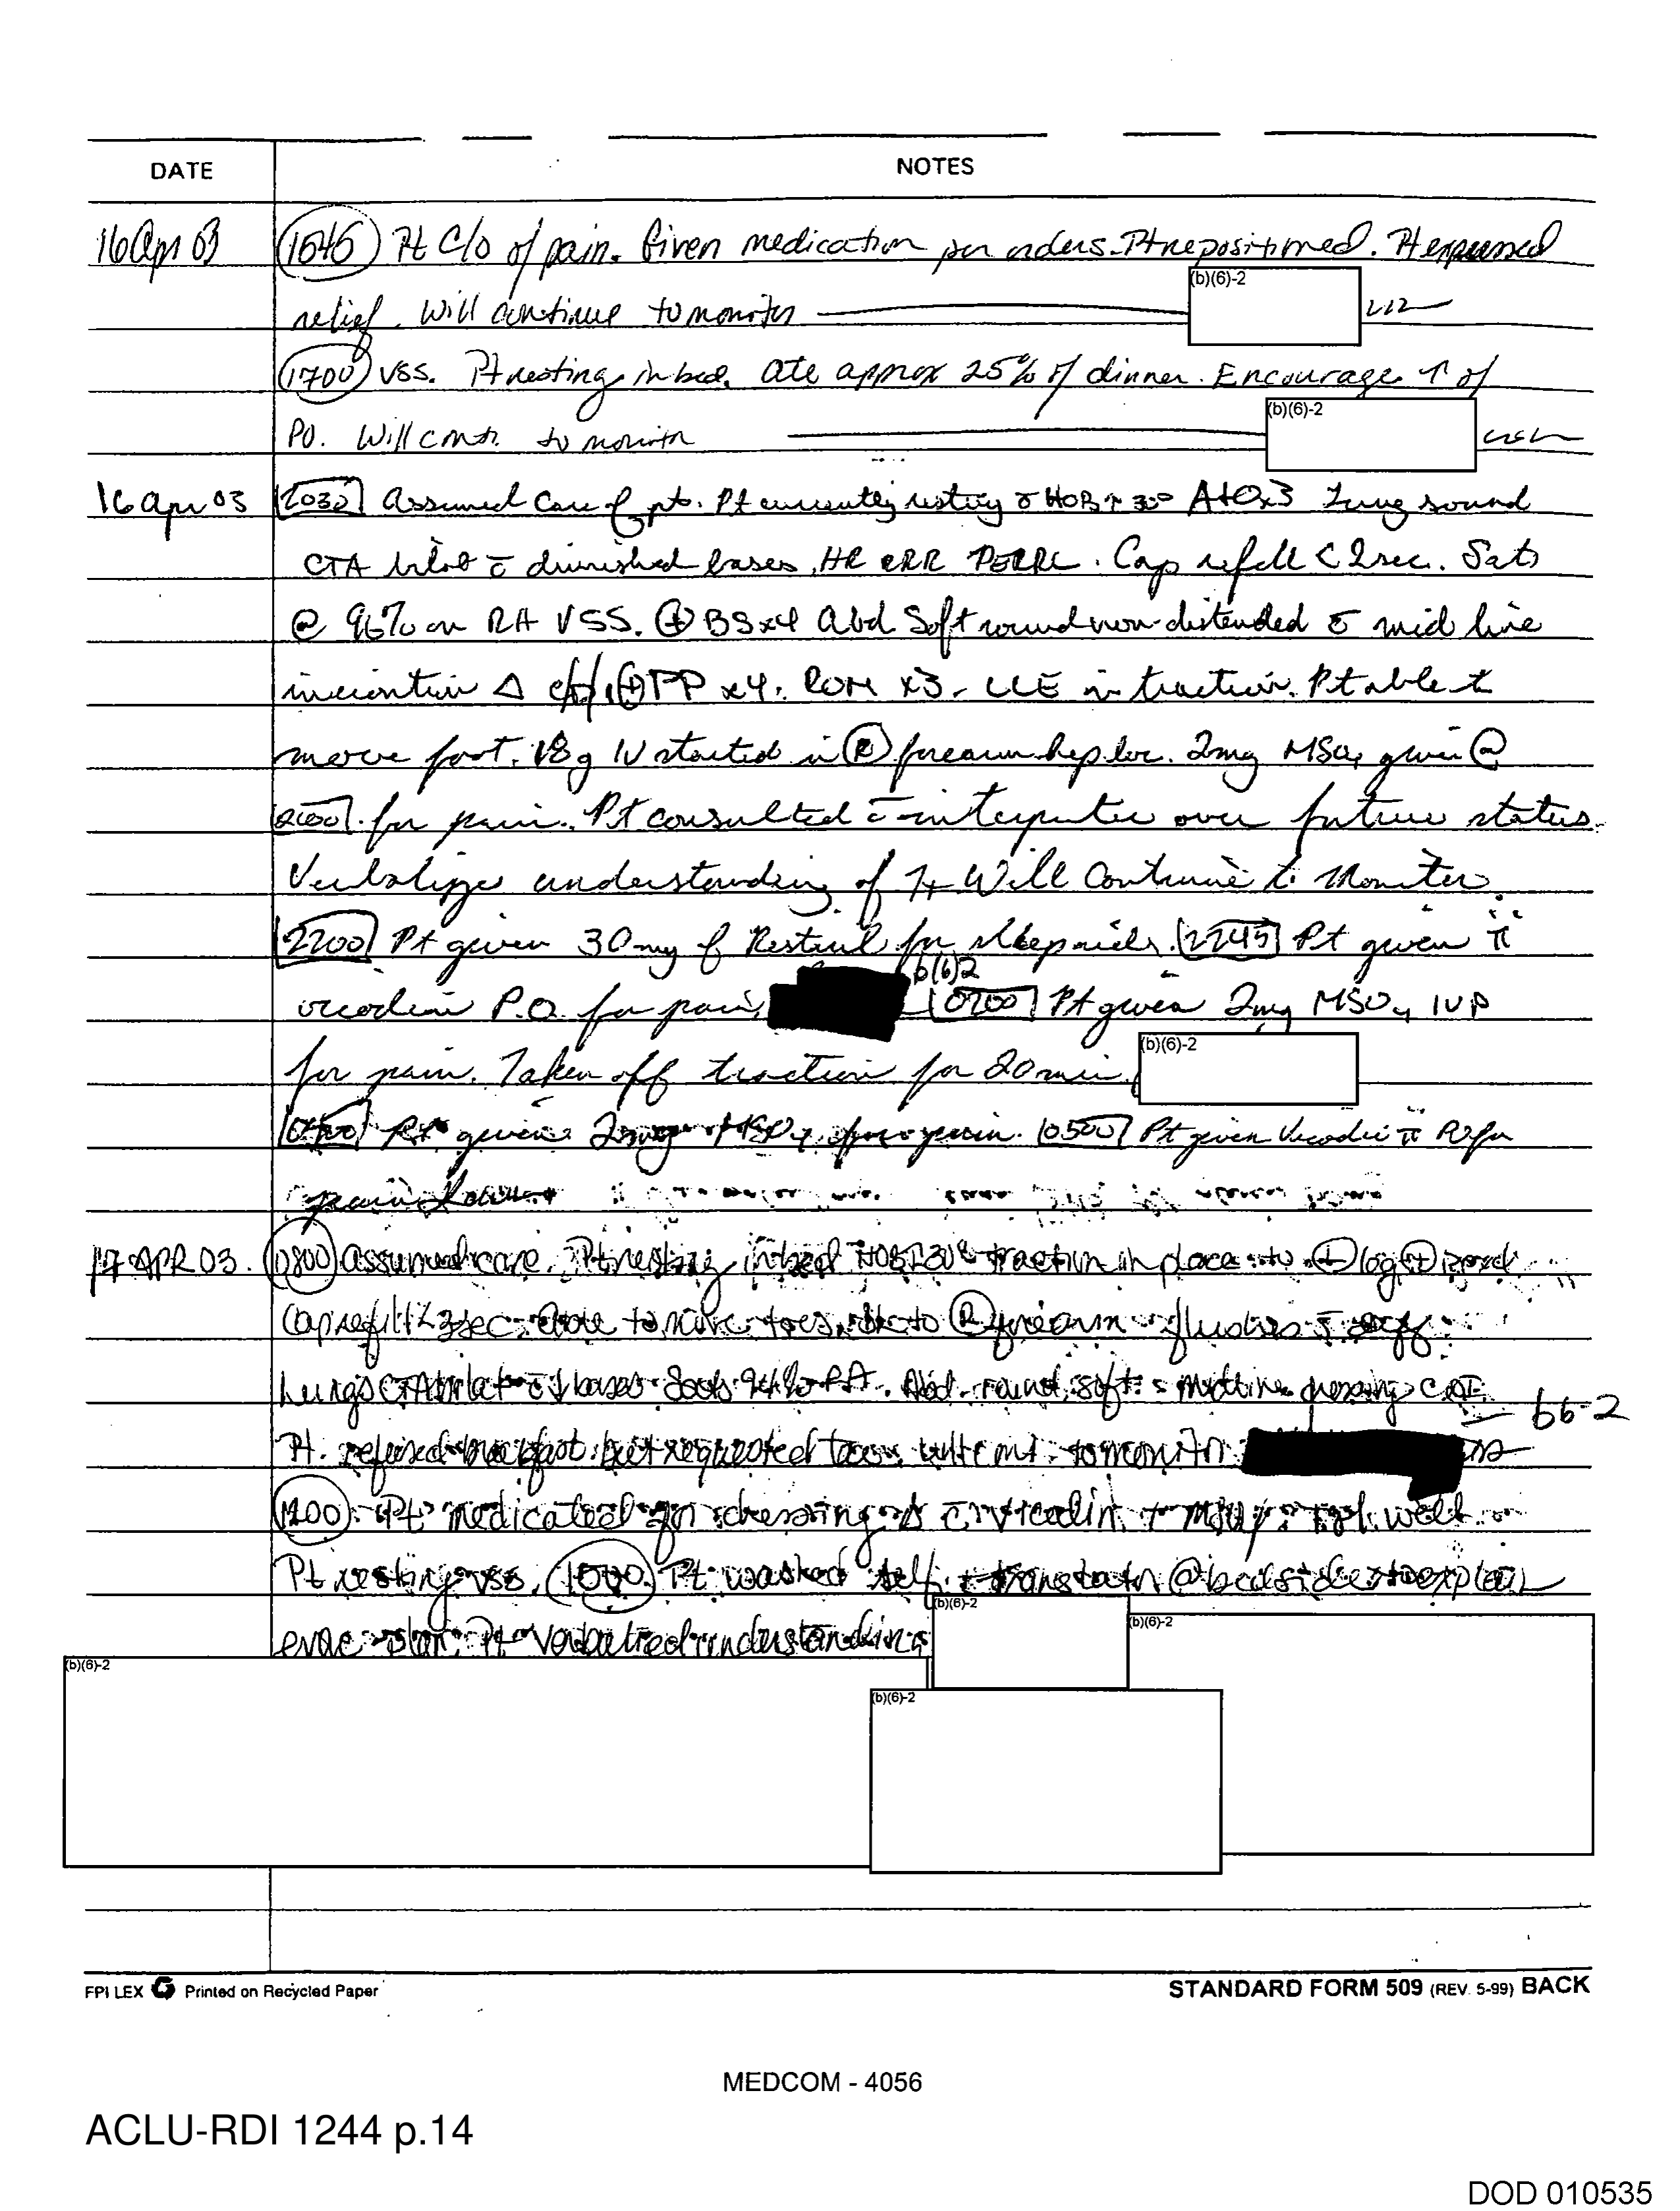 DATE NOTES
16 Apr 03 1545 Pt c/o of pain. Given medication per orders. Pt repositioned. Pt expressed
(b)(6)-2
relief. Will continue to monitor
1700 VSS. Pt resting in bed. Ate approx 25% of dinner. Encourage ↑ of
(b)(6)-2
PO. Will cont. to monitor
16 Apr 03 2030 Assumed Care of pt. Pt currently resting c̄ HOB ↑ 30° A+Ox3 Lung sound
CTA bilat c̄ diminished bases, HR RRR PERRL. Cap refill < 2sec. Sats
@ 96% on RA VSS. ⊕ BSx4 Abd Soft round non-distended c̄ mid line
Δ ⊕ PP x4. ROM x3. LLE in traction. Pt able to
move foot. 18g IV started in Ⓡ forearm hep loc. 2mg MSO4 given @
for pain. Pt consulted c̄ interpreter over future status.
Verbalizes understanding of it Will Continue to Monitor.
2200 Pt given 30mg of Restoril for sleep aide. 2245 Pt given ii
b(6)2
vicodin P.O. for pain, 0200 Pt given 2mg MSO4 IVP
for pain. Taken off traction for 20 min.
(b)(6)-2
Pt given 2mg MSO4 for pain. 0500 Pt given Vicodin ii PO for
pain
17 APR 03. 0800 assumed care. Pt resting in bed HOB ↑ 30° traction in place to leg ⊕
Cap refill < 3sec. able to move toes. to Ⓡ forearm flushes s̄
Lungs CTA bilat c̄ ↓ bases Sats 94% RA. Abd. round, soft. midline dressing CDI
b6-2
Pt. refused breakfast but requested will cont. to monitor
1200 Pt medicated for dressing Δ c̄ vicodin + MSO4. Tol. well
Pt resting VSS. 1500 Pt washed self. translator @ bedside to explain
(b)(6)-2
(b)(6)-2
evac plan. Pt verbalized understanding
(b)(6)-2
(b)(6)-2
FPI LEX Printed on Recycled Paper STANDARD FORM 509 (REV. 5-99) BACK
MEDCOM - 4056
ACLU-RDI 1244 p.14
DOD 010535